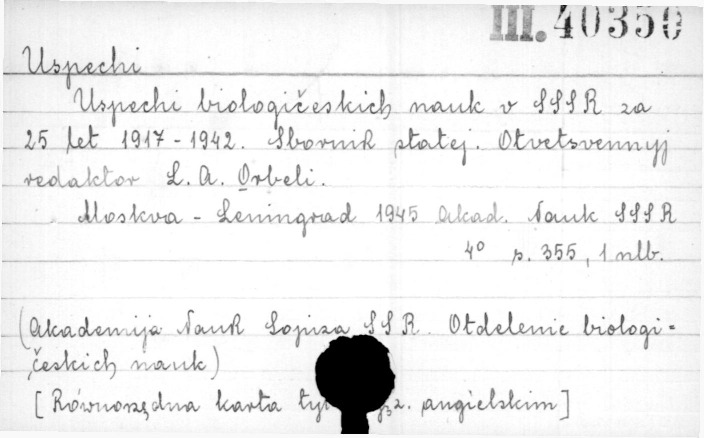 III. 40350
Uspechi
Uspechi biologičeskich nauk v SSSR za
25 let 1917-1942. Sbornik statej. Otvetsvennyj
redaktor L. A. Orbeli.
Moskva - Leningrad 1945 Akad. Nauk SSSR
4° p. 355, 1 nlb.
(Akademija Nauk Sojuza SSR. Otdelenie biologi=
českich nauk)
[Równorzędna karta z. angielskim]